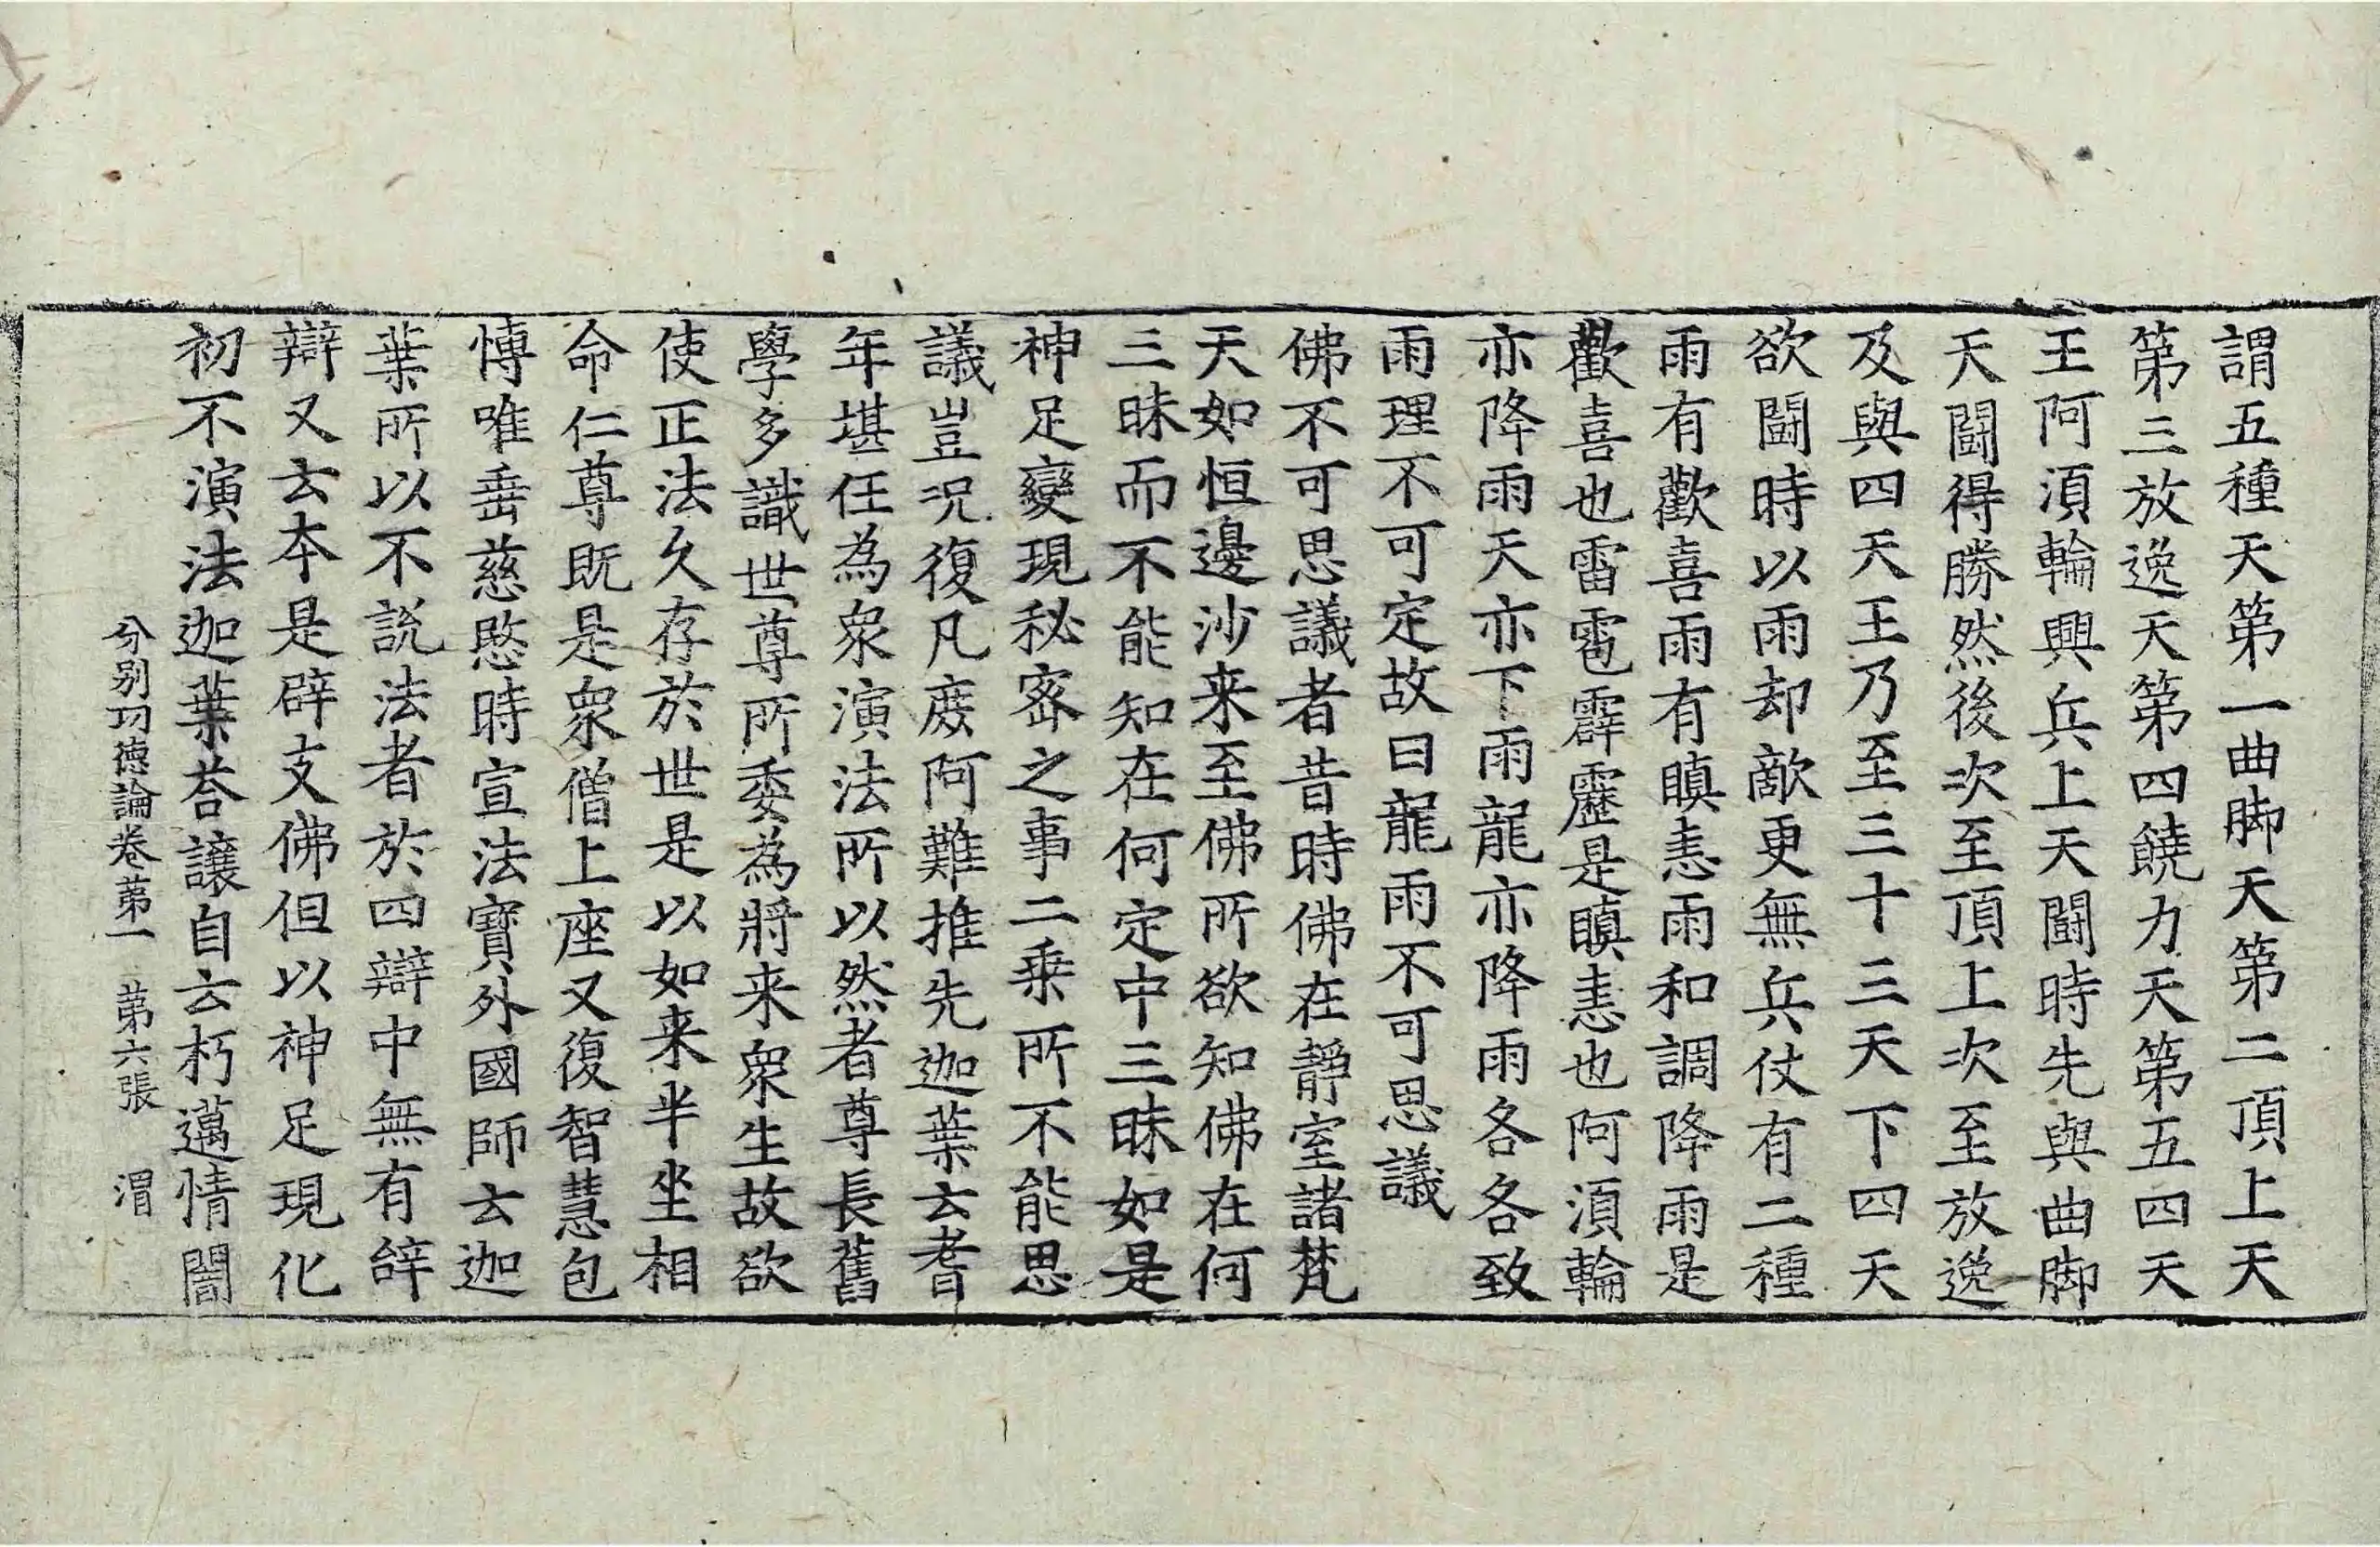 謂五種天第一曲脚天第二頂上天
第三放逸天第四饒力天第五四天
王阿湏輪興兵上天闘時先與曲脚
天闘得勝然後次至頂上次至放逸
及與四天王乃至三十三天下四天
欲闘時以雨却敵更無兵仗有二種
雨有歡喜雨有瞋恚雨和調降雨是
歡喜也雷雹霹靂是瞋恚也阿湏輪
亦降雨天亦下雨龍亦降雨各各致
雨理不可定故曰龍雨不可思議
佛不可思議者昔時佛在靜室諸梵
天如恒邊沙来至佛所欲知佛在何
三昧而不能知在何定中三昧如是
神足變現秘密之事二乘所不能思
議豈况復凡庻阿難推先迦葉云耆
年堪任為衆演法所以然者尊長舊
學多識世尊所委為將来衆生故欲
使正法久存於世是以如来半坐相
命仁尊既是衆僧上座又復智慧包
愽唯垂慈愍時宣法寶外國師云迦
葉所以不説法者於四辯中無有辝
辯又云本是辟支佛但以神足現化
初不演法迦葉荅讓自云朽邁情闇
分别功德論卷第一　第六張　渭